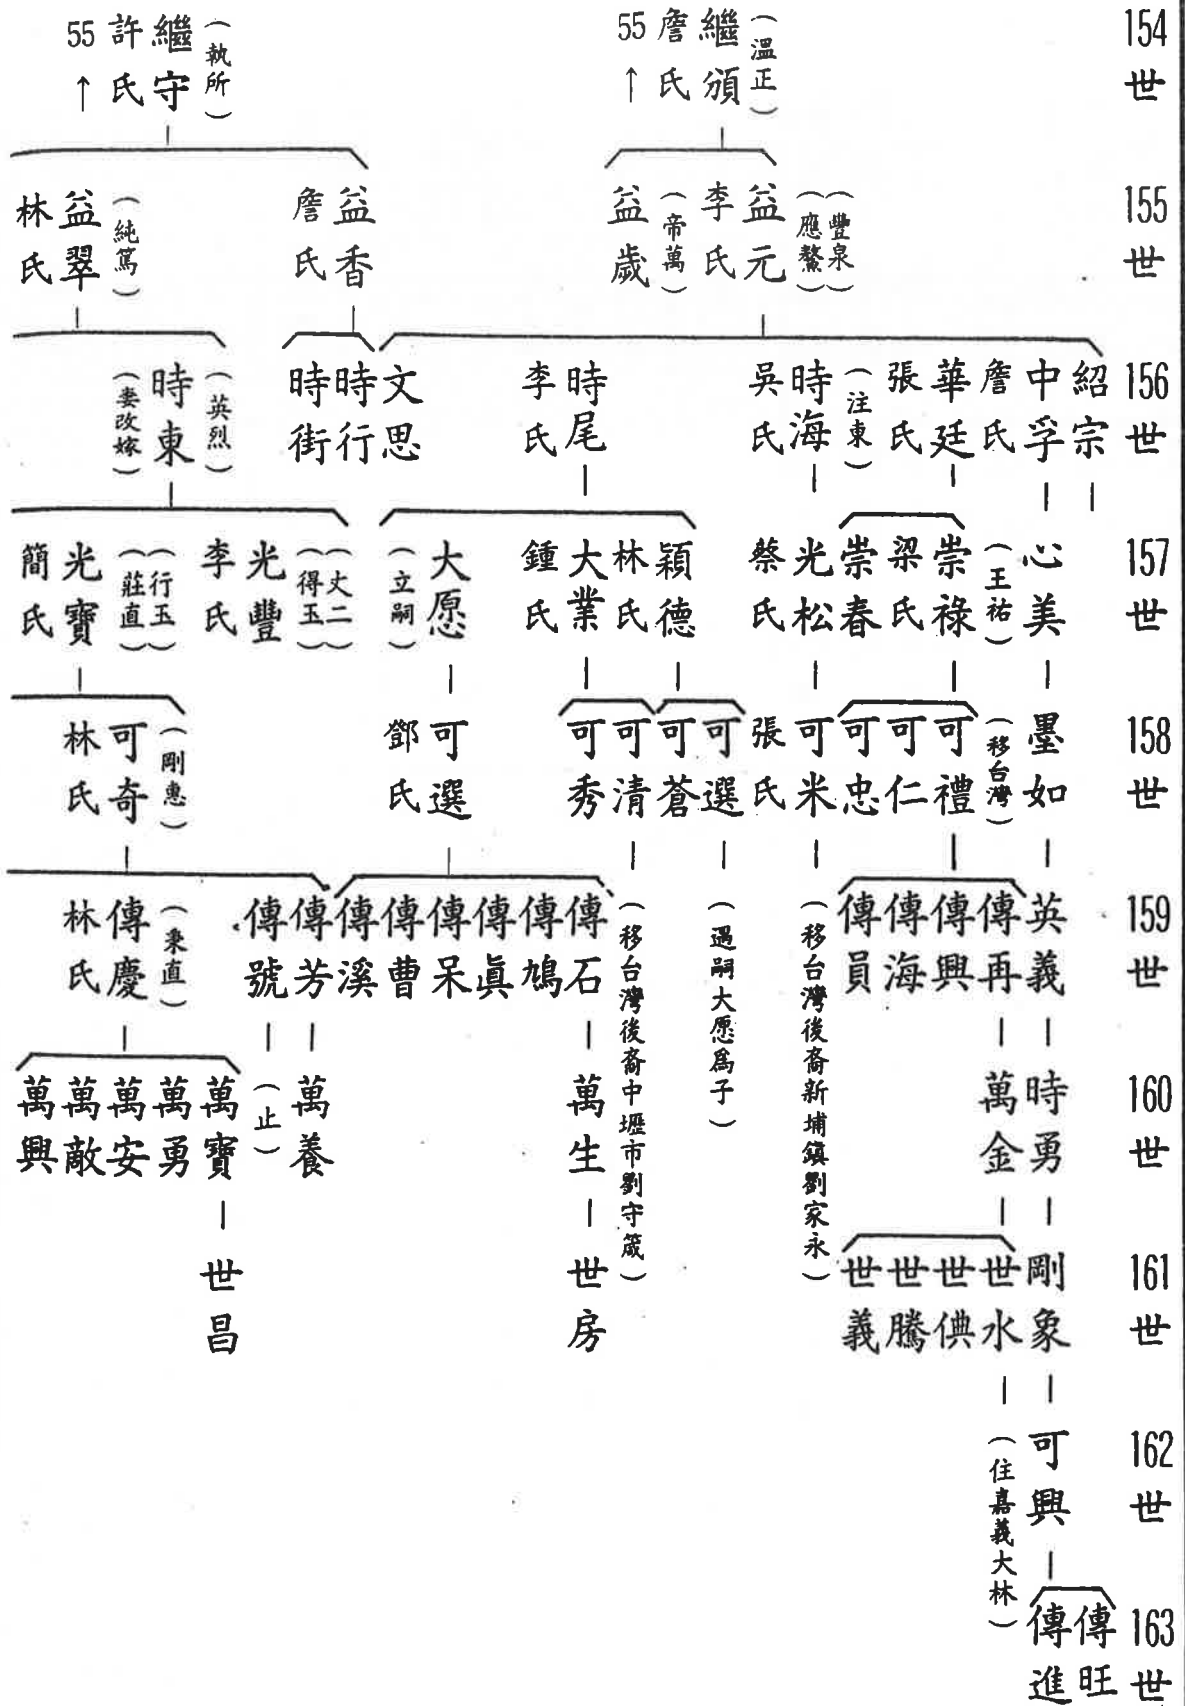 154世
繼頒
（溫正）
詹氏
55
↑
繼守
（執所）
許氏
55
↑
155世
益元
（豐泉）
（應鰲）
李氏
益歲
（帝萬）
益香
詹氏
益翠
（純篤）
林氏
156世
紹宗
中孚
詹氏
華廷
張氏
時海
（注東）
吳氏
時尾
李氏
文思
時行
時街
時東
（英烈）
（妻改嫁）
157世
心美
崇祿
（王祐）
梁氏
崇春
光松
蔡氏
穎德
林氏
大業
鍾氏
大愿
（立嗣）
光豐
（丈二）
（得玉）
李氏
光寶
（行玉）
（莊直）
簡氏
158世
墨如
可禮
（移台灣）
可仁
可忠
可米
張氏
可選
可蒼
可清
可秀
可選
鄧氏
可奇
（剛惠）
林氏
159世
英義
傳再
傳興
傳海
傳員
（移台灣後裔新埔鎮劉家永）
（過嗣大愿為子）
（移台灣後裔中壢市劉守箴）
傳石
傳鳩
傳真
傳呆
傳曹
傳溪
傳芳
傳號
傳慶
（秉直）
林氏
160世
時勇
萬金
萬生
萬養
（止）
萬寶
萬勇
萬安
萬敵
萬興
161世
剛象
世水
世倎
世騰
世義
世房
世昌
162世
可興
（住嘉義大林）
163世
傳旺
傳進